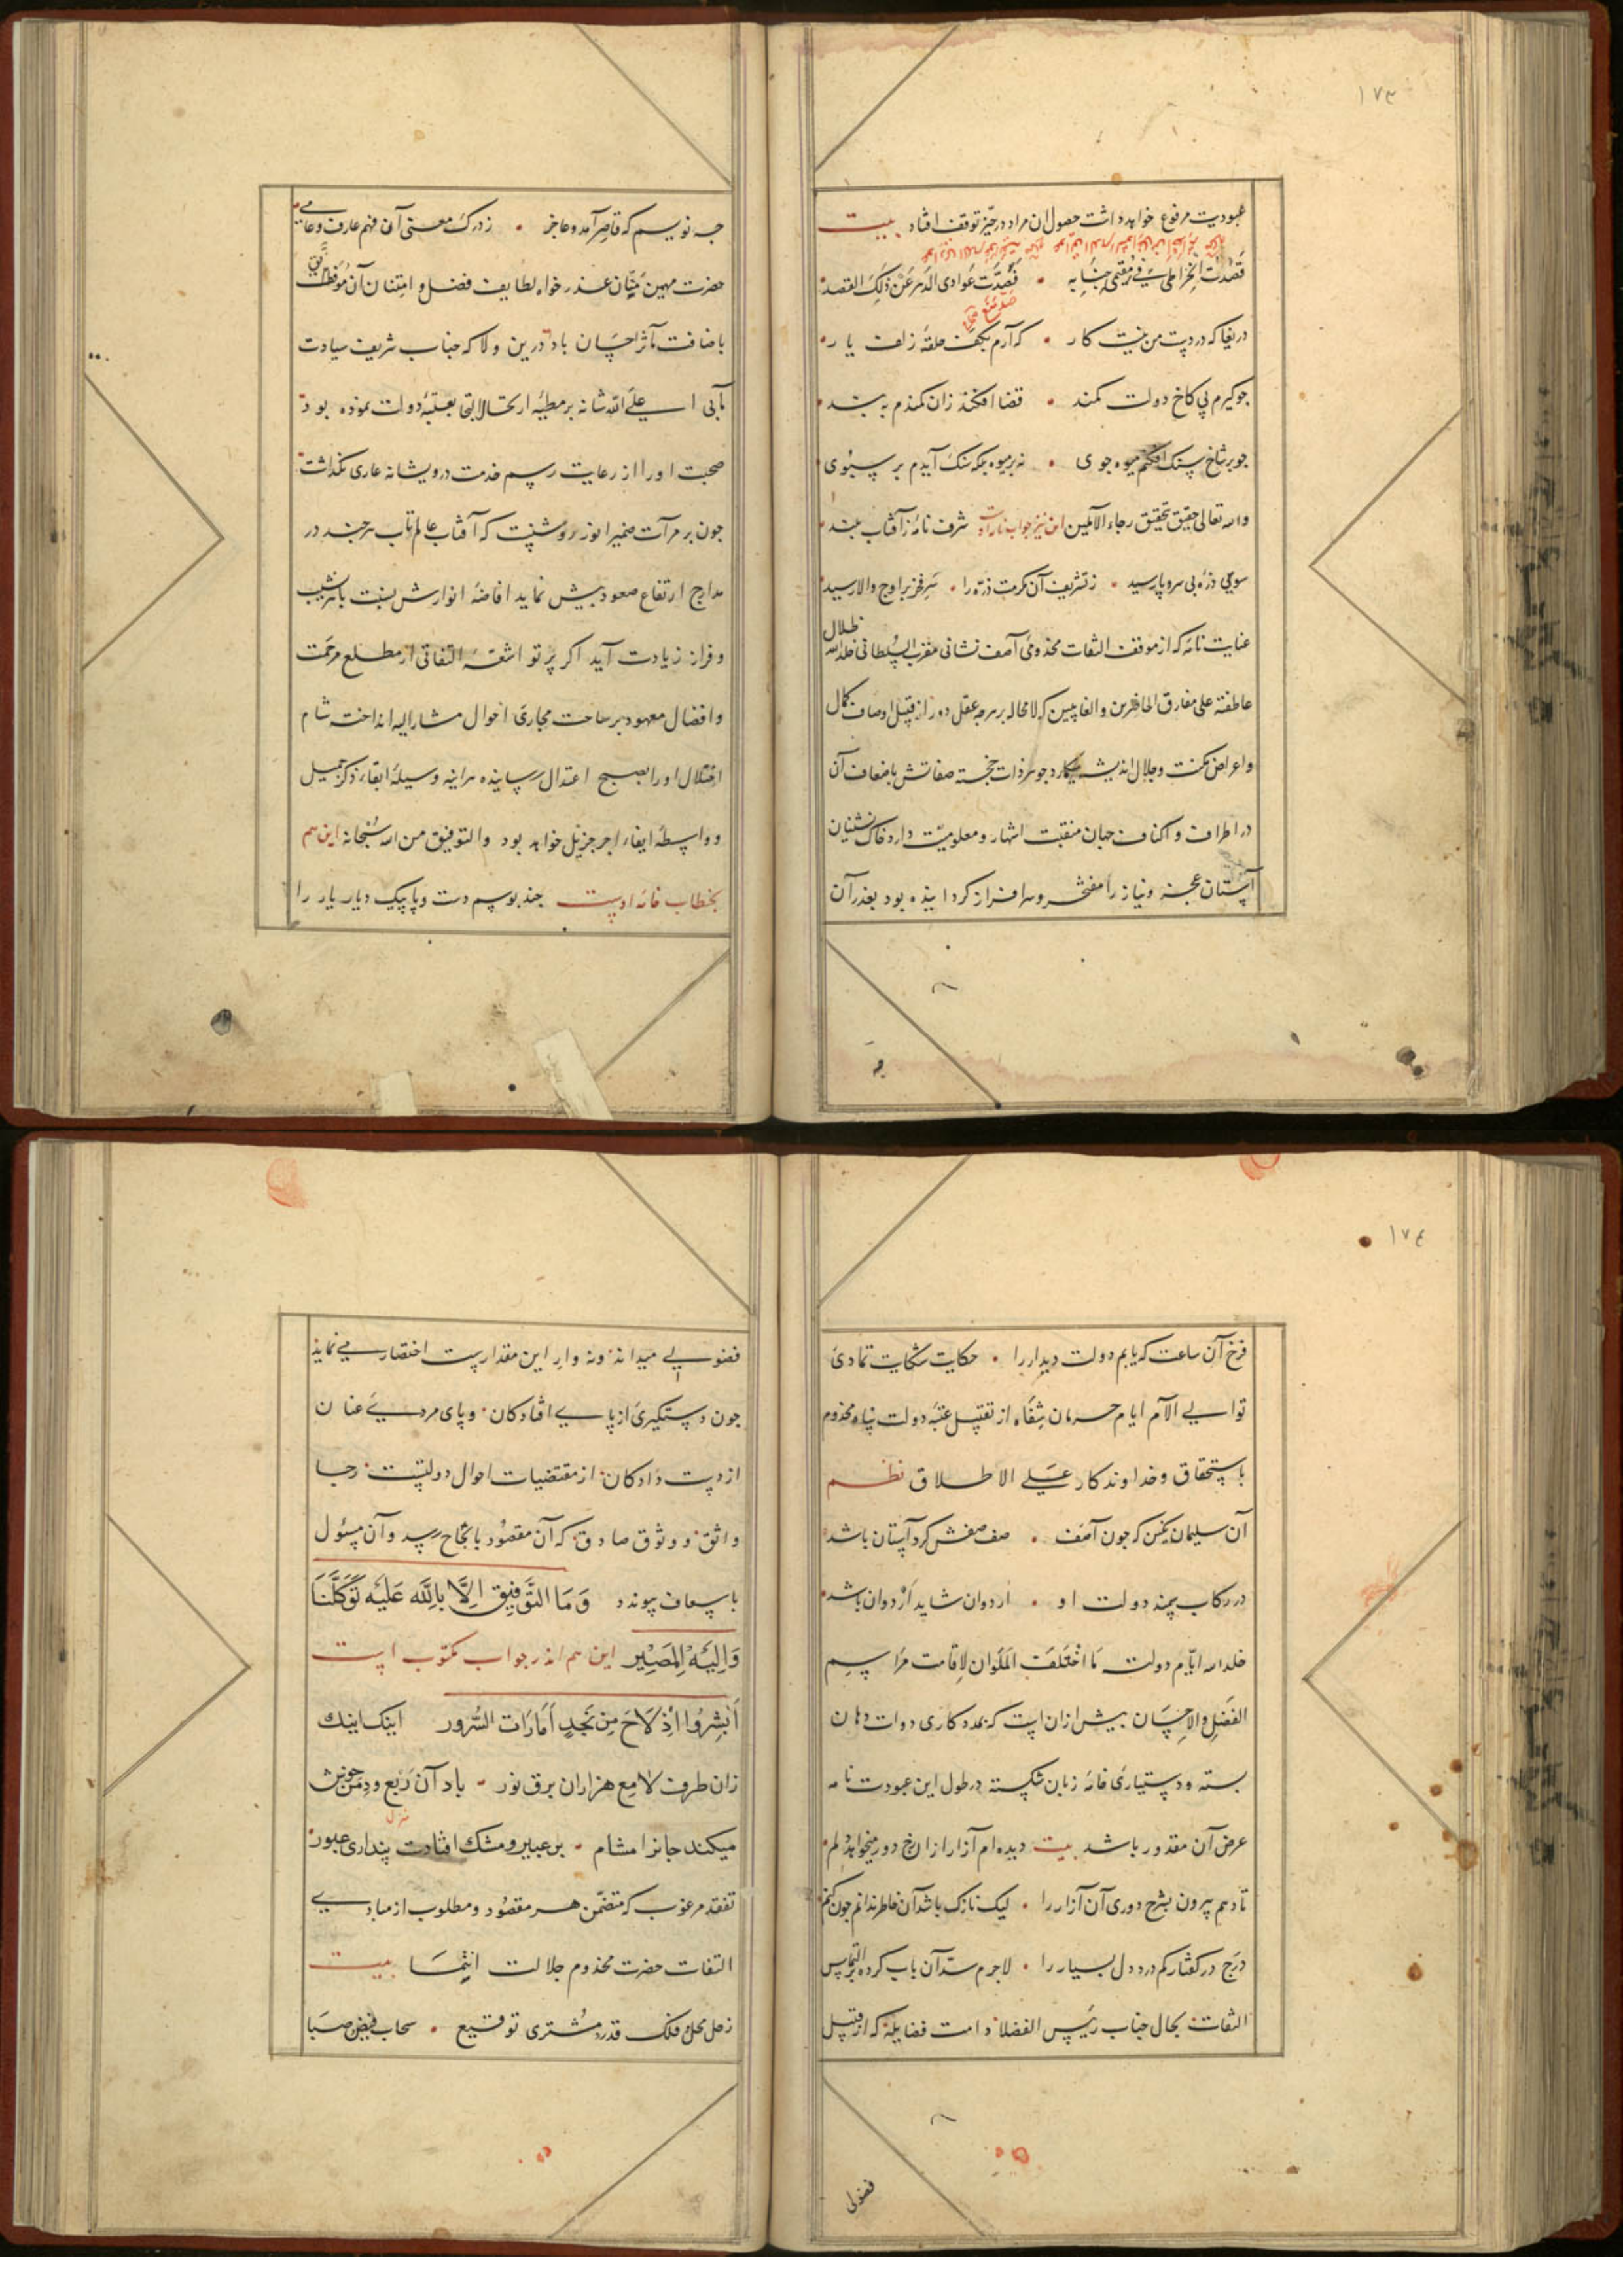 ١٧٣
عبودیت مرفوع خواهد داشت حصول ان مراد در حیّز توقف افتاد بیت
قَصَدْتُ فی جَنابِه • فَصَدَّت عَوادی الدَهر عَنْ ذَلِکَ القصد
دریغا که در دست من نیست کار • که آرم بکف حلقهٔ زلف یار
جو کیرم پی کاخ دولت کمند • قضا افکند زان کمندم به بند
جو بر شاخ سنک افکنم میوه جوی • نه بر میوه بلکه سنک آیدم بر سبوی
والله تعالی حقیق تحقیق رجاء الآملین این نیز جواب نامه اوست شرف نامهٔ ز آفتاب بلند
سوی ذرهٔ بی سر و پا رسید • ز تشریف آن مکرمت ذرّه را • سر فخر بر اوج والا رسید
عنایت نامه که از موقف التفات مخدومی آصف نشانی مقرب السلطانی خلد الله ظلال
عاطفته علی مفارق الحاضرین والغایبین که لا محاله بر سر چه عقل دور از قبیل اوصاف کمال
واعراض مکنت وجلال اندیشه جوهر ذات خجسته صفاتش باضعاف آن
در اطراف واکناف جهان منقبت اشتهار ومعلومیّت دارد خاک نشینان
آستان عجز ونیاز را مفتخر وسرافراز کردانیده بود بعذر آن
جه نویسم که قاصر آمد وعاجز • ز درک معنی آن فهم عارف وعامی
حضرت مهین منّان عذر خواه لطایف فضل و امتنان آن
باضافت مآثر احسان باد درین ولا که جناب شریف سیادت
مآبی اعلی الله شانه بر مطیهٔ ارتحال التجا بعتبهٔ دولت نموده بود
صحبت او را از رعایت رسم خدمت درویشانه عاری نکذاشت
جون بر مرآت ضمیر انور روشنست که آفتاب عالم تاب هرجند در
مدارج ارتفاع صعود بیش نماید افاضهٔ انوارش نسبت با نشیب
وفراز زیادت آید اکر پرتو اشعّهٔ التفاتی از مطلع مرحمت
وافضال معهود بر ساحت مجاری احوال مشار الیه انداخته شام
اختلال او را بصبح اعتدال رسانیده هراینه وسیلهٔ ابقاء ذکر جمیل
وواسطهٔ ایفاء اجر جزیل خواهد بود والتوفیق من الله سُبحانه این هم
بخطاب خامه اوست جند بوسم دست وپا پیک دیار یار را
١٧٤
فرخ آن ساعت که یابم دولت دیدار را • حکایت شکایت تمادی
توالی الآم ایام حرمان شفاه از تقبیل عتبهٔ دولت پناه مخدوم
باستحقاق وخداوندکار علی الاطلاق نظم
آن سلیمان نکین که جون آصف • صف صفش کرد آستان باشد
در رکاب سمند دولت او • اردوان شاید ار دوان باشد
خلد الله ایّام دولته مَا اختَلَف المَلَوان لاِقامت مَراسم
الفَضل والاحسان بیش از آن است که بمددکاری دوات دهان
بسته ودستیاری خامهٔ زبان شکسته در طول این عبودت نامه
عرض آن مقدور باشد بیت دیده ام آزار ازان رخ دور میخواهد دلم
تا دهم بیرون بشرح دوری آن آزار را • لیک نازک باشد آن خاطر ندانم جون کنم
درج در کفتار کم درد دل بسیار را • لاجرم سدّ آن باب کرده التماس
التفات بحال جناب رئیس الفضلا دامت فضایله که از قبیل
فضولی
فضولی میداند ونه وار این مقدار است اختصار می نماید
جون دستکیری از پای افتادکان وپای مردی عنان
از دست دادکان از مقتضیات احوال دولتست رجا
واثق ووثوق صادق که آن مقصُود بانجاح رسد وآن مسئول
باسعاف پیوندد وَمَا التَّوفیق اِلَّا بِاللّٰه عَلَیْه تَوکَّلنَا
وَاِلَیْهِ المَصِیْر این هم اندر جواب مکتوب است
اَبْشِروا اِذْ لَاحَ مِن نَجدٍ اَمَارَات السُّرور اینک اینک
زان طرف لامع هزاران برق نور • باد آن رَبْع ودِمَن
میکند جانرا مشام • بر عبیر ومشک افتادت پنداری عبور
تفقد مرغوب که متضمّن هر مقصُود ومطلوب از مبادی
التفات حضرت مخدوم جلالت انتما بیت
زحل محل فلک قدر مشتری توقیع • سحاب فیض صبا